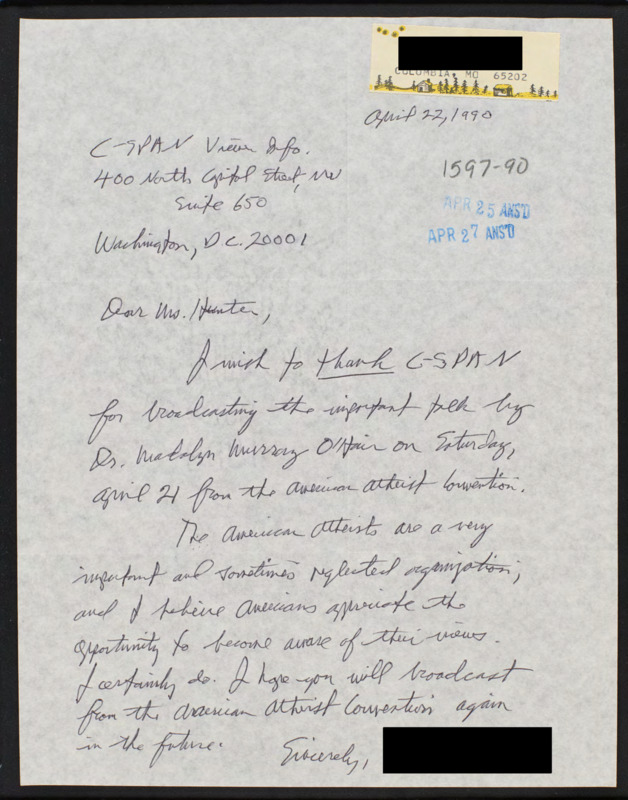 COLUMBIA, MO 65202
April 22, 1990
C-SPAN Viewer Info.
400 North Capitol Street, NW
Suite 650
Washington, D.C. 20001
1597-90
APR 25 ANS'D
APR 27 ANS'D
Dear Ms. Hunter,
I wish to thank C-SPAN
for broadcasting the important talk by
Dr. Madalyn Murray O'Hair on Saturday,
April 21 from the American Atheist Convention.
The American Atheists are a very
important and sometimes neglected organization,
and I believe Americans appreciate the
opportunity to become aware of their views.
I certainly do. I hope you will broadcast
from the American Atheist Convention again
in the future.
Sincerely,